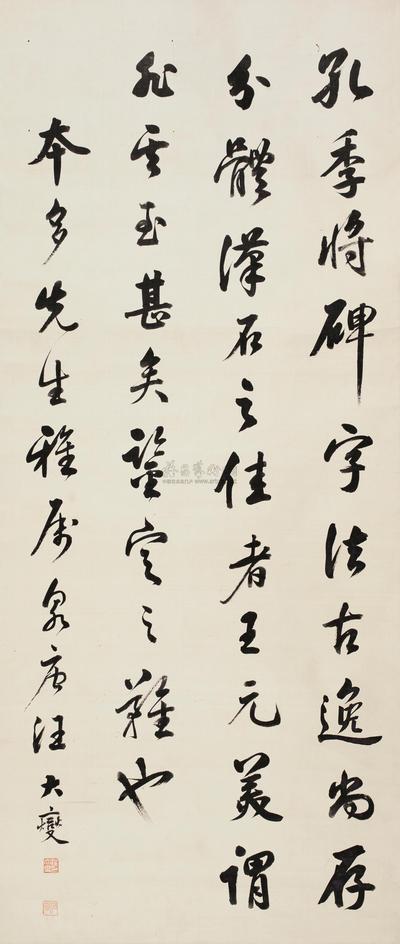 孔季將碑字法古逸尚存
分體漢石之佳者王元美謂
非其至甚矣鑒定之難也
本多先生雅属泉唐汪大燮